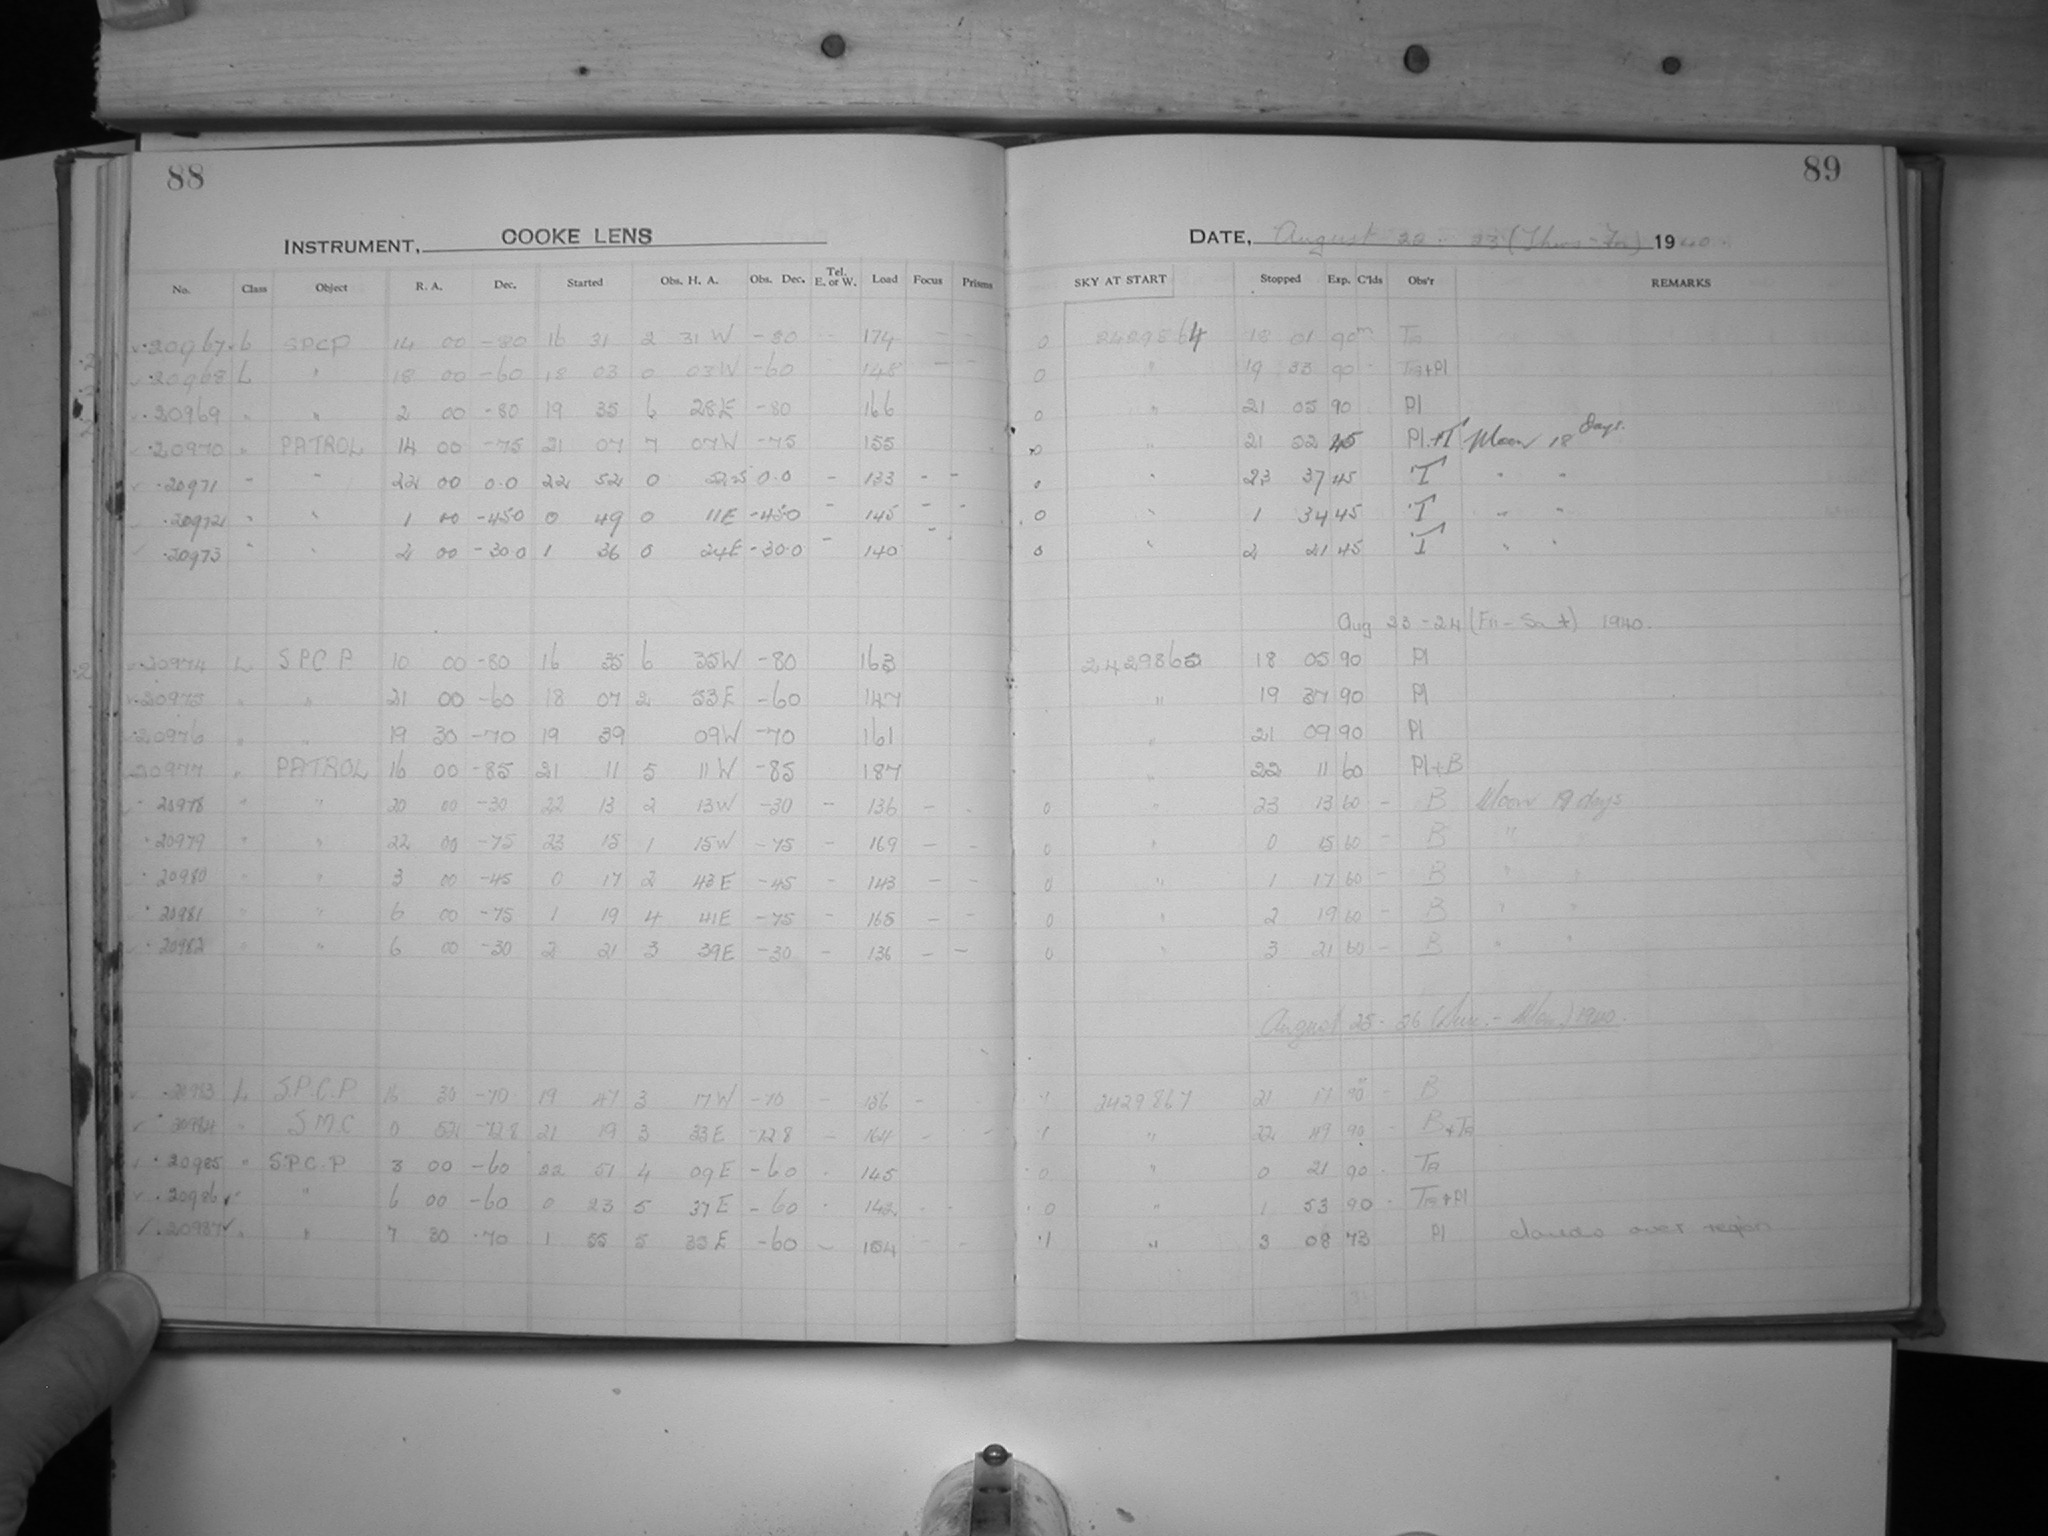 88
INSTRUMENT, COOKE LENS
No. Class Object R. A. Dec. Started Obs. H. A. Obs. Dec. Tel. E. or W. Load Focus Prisms
20967 L SPCP 14 00 -80 16 31 2 31 W -80 174
20968 L " 18 00 -60 18 03 0 03 W -60 148
20969 " " 2 00 -80 19 35 6 28 E -80 166
20970 " PATROL 14 00 -75 21 07 7 07W -75 155
20971 " " 22 00 0.0 22 52 0 0.0 - 133 - -
20972 " " 1 00 -45.0 0 49 0 11E -45.0 - 145 - -
20973 " " 2 00 -30.0 1 36 0 24E -30.0 - 140
20974 L S.P.C.P. 10 00 -80 16 35 6 35W -80 163
20975 " " 21 00 -60 18 07 2 53E -60 147
20976 " " 19 30 -70 19 39 09W -70 161
20977 " PATROL 16 00 -85 21 11 5 11W -85 187
20978 " " 20 00 -30 22 13 2 13W -30 - 136 - -
20979 " " 22 00 -75 23 15 1 15W -75 - 169 - -
20980 " " 3 00 -45 0 17 2 43E -45 - 143 - -
20981 " " 6 00 -75 1 19 4 41E -75 - 165 - -
20982 " " 6 00 -30 2 21 3 39E -30 - 136 - -
20983 L S.P.C.P. 16 30 -70 19 47 3 17W -70 - 156 -
20984 " S.M.C 0 52 -72.8 21 19 3 33E -72.8 - 164 - -
20985 " S.P.C.P. 3 00 -60 22 51 4 09E -60 145
20986 " " 6 00 -60 0 23 5 37E -60 142 - -
20987 " " 7 30 -70 1 55 5 35E -60 - 154 - -
89
DATE, August 22 - 23 (Thurs - Fri) 1940
SKY AT START Stopped Exp. C'lds Obs'r REMARKS
0 2429864 18 01 90m Ta
0 " 19 33 90 - Ta+Pl
0 " 21 05 90 Pl
0 " 21 52 45 Pl.+T Moon 18 days.
" 23 37 45 T " "
0 " 1 34 45 T " "
0 " 2 21 45 T " "
Aug 23-24 (Fri-Sat) 1940.
2429865 18 05 90 Pl
" 19 37 90 Pl
" 21 09 90 Pl
" 22 11 60 Pl+B
0 " 23 13 60 - B Moon 19 days
0 " 0 15 60 - B "
0 " 1 17 60 - B " "
0 " 2 19 60 - B " "
0 " 3 21 60 - B " "
August 25 - 26 (Sun. - Mon.) 1940.
1 2429867 21 17 90 - B
1 " 22 49 90 - B+Ta
0 " 0 21 90 - Ta
0 " 1 53 90 - Ta+Pl
1 " 3 08 73 Pl clouds over region